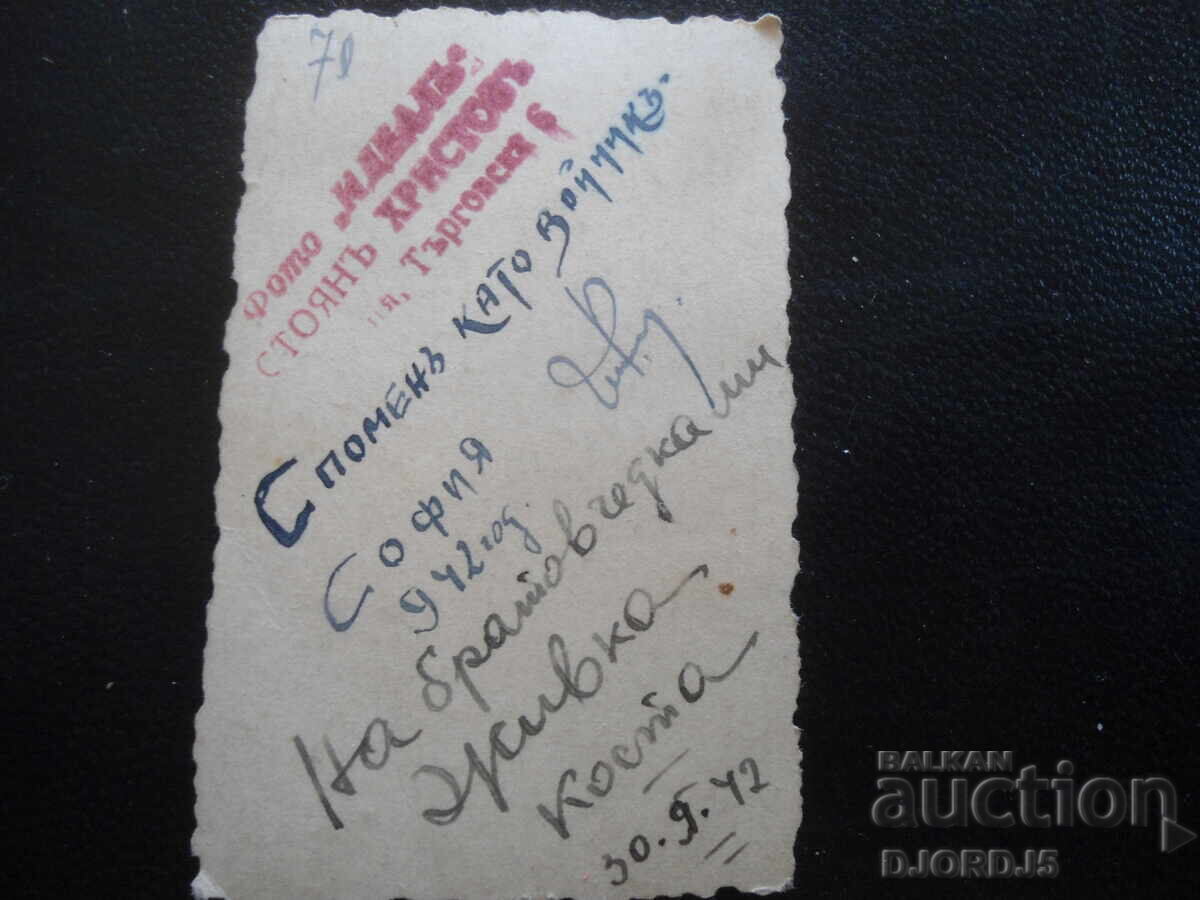 Фото „ИДЕАЛЪ“
СТОЯНЪ ХРИСТОВЪ
ия, Търговска 6
СПОМЕНЪ КАТО ВОЙНИКЪ.
СОФИЯ
942 год.
На братовчедка ми
Живка
Коста
30.9.42
BALKAN
auction
DJORDJ5